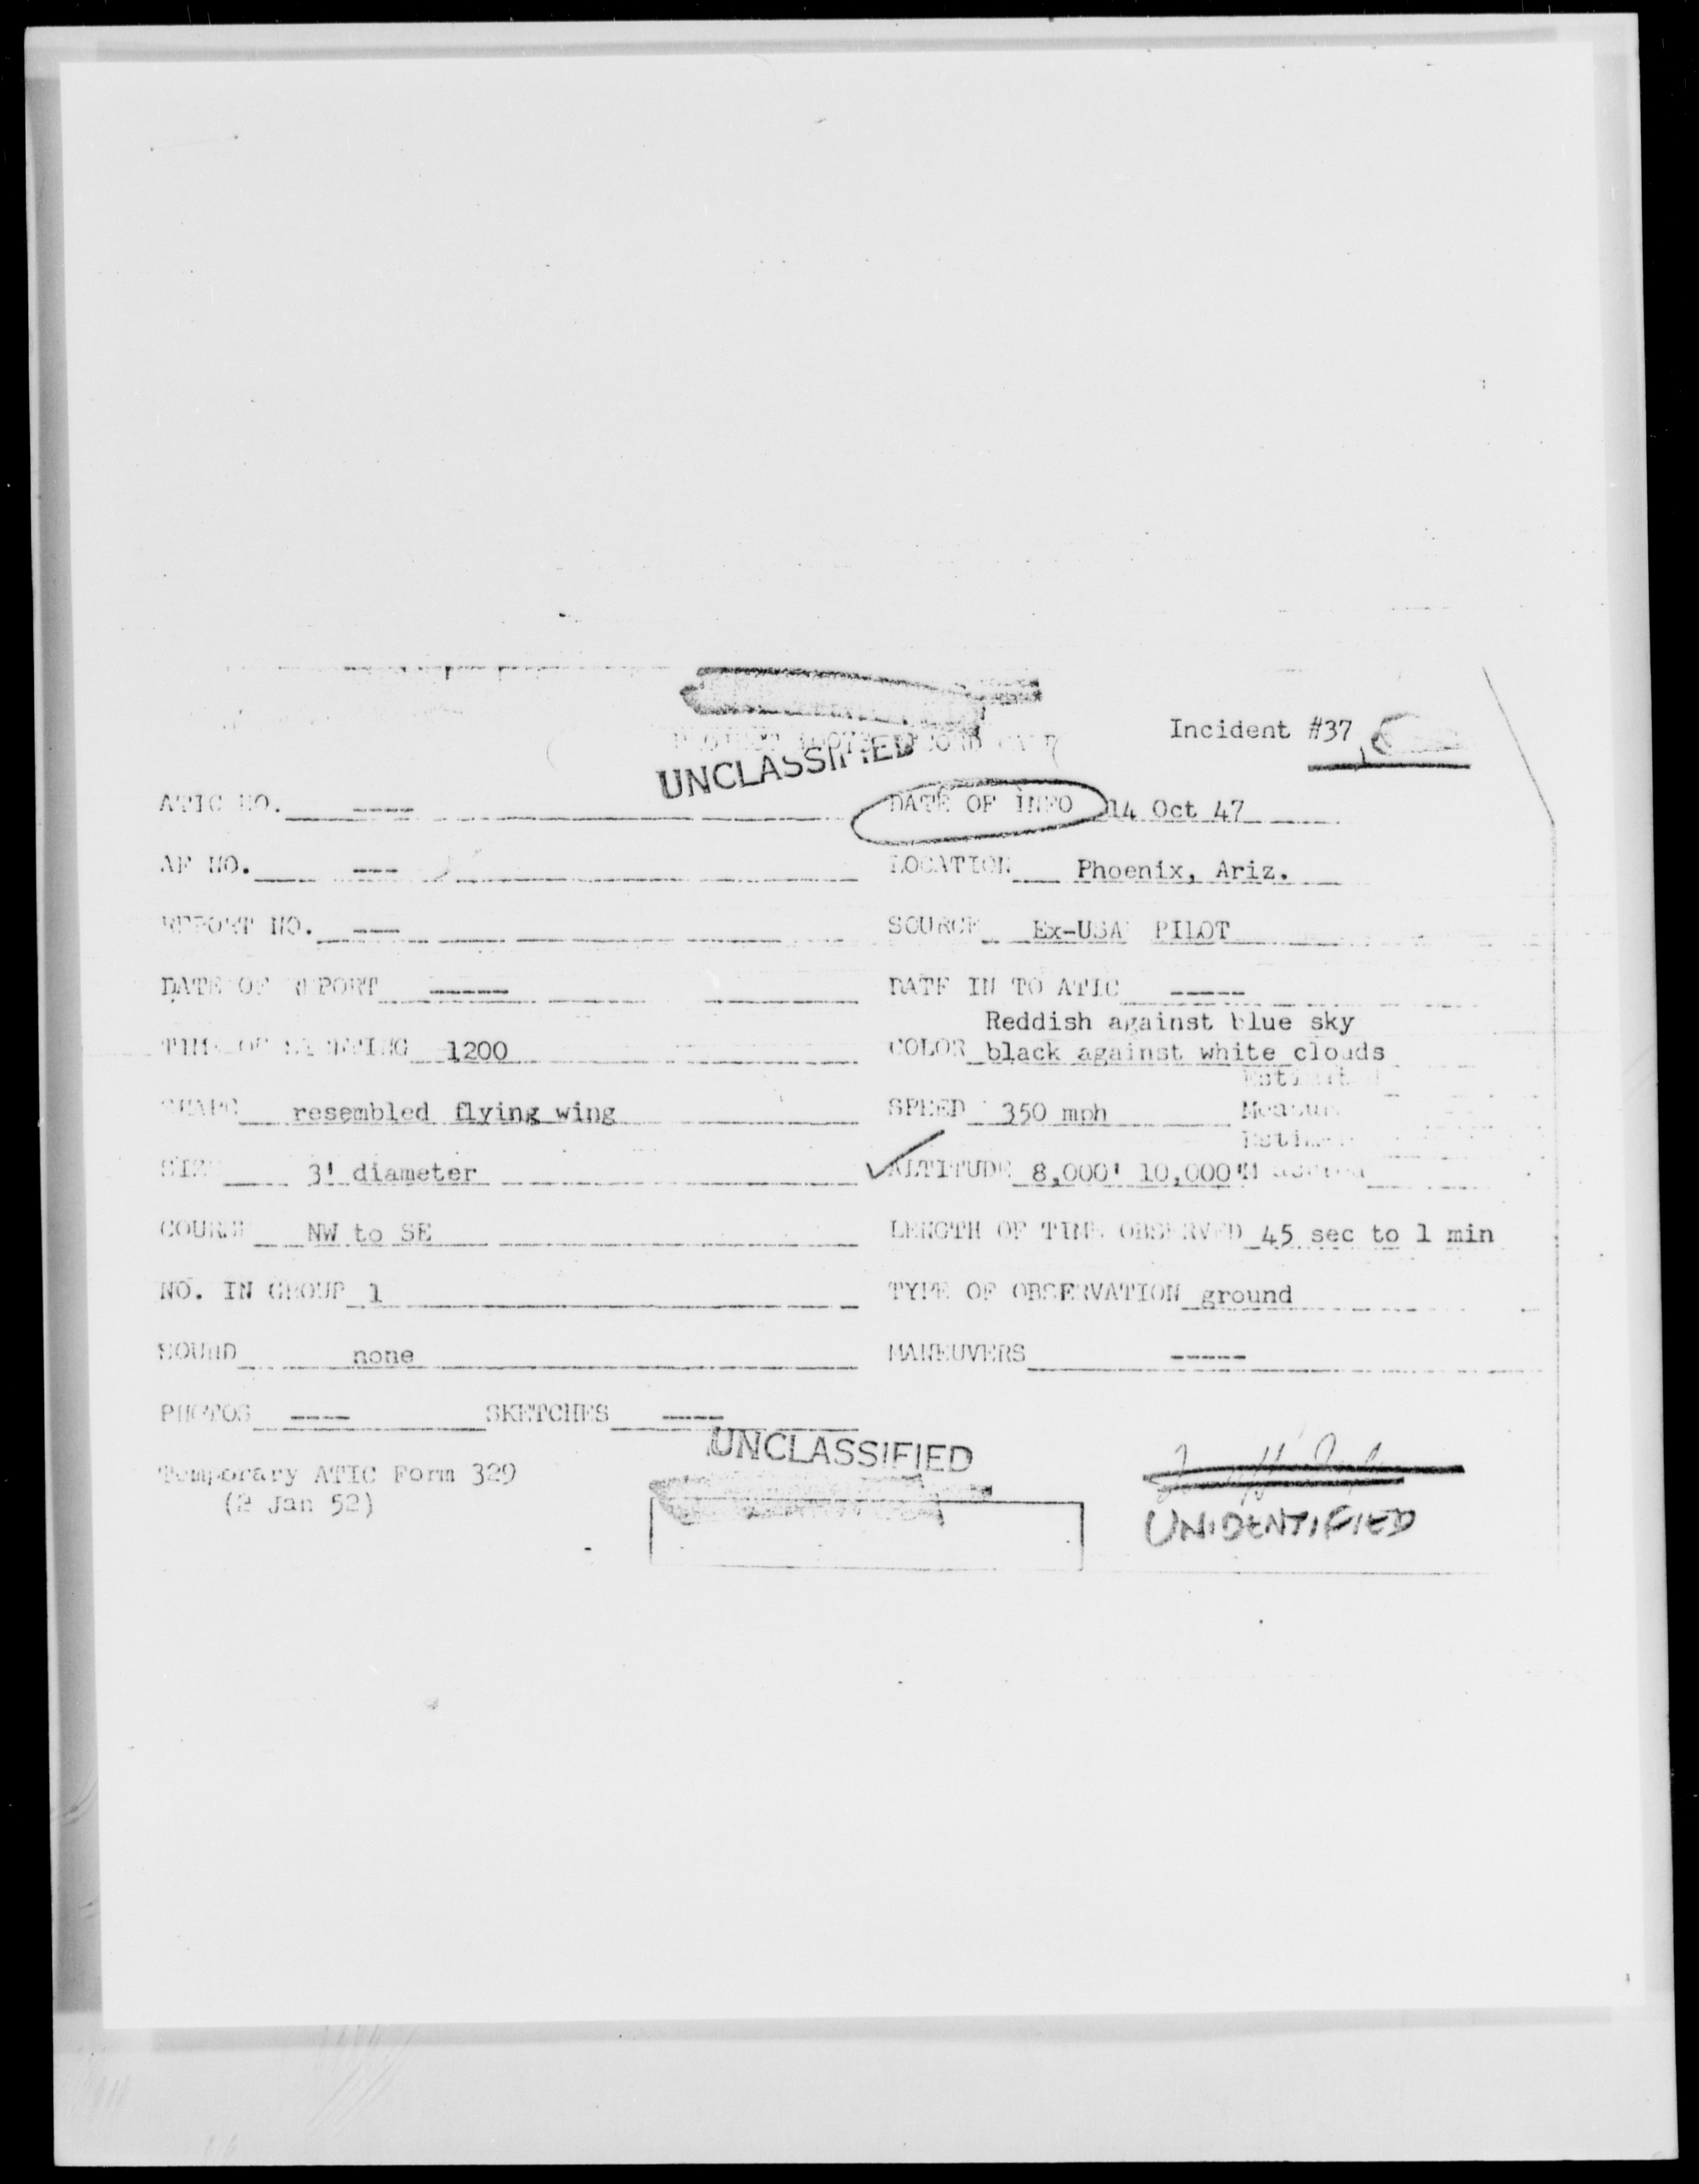 Incident #37
UNCLASSIFIED
ATIC NO. ----
DATE OF INFO 14 Oct 47
AF NO. ---
LOCATION Phoenix, Ariz.
REPORT NO. ---
SOURCE Ex-USA PILOT
DATE OF REPORT -----
DATE IN TO ATIC -----
Reddish against blue sky
TIME OF SIGHTING 1200
COLOR black against white clouds
Estimated
SHAPE resembled flying wing
SPEED 350 mph
SIZE 3' diameter
ALTITUDE 8,000' 10,000'
COURSE NW to SE
LENGTH OF TIME OBSERVED 45 sec to 1 min
NO. IN GROUP 1
TYPE OF OBSERVATION ground
SOUND none
MANEUVERS -----
PHOTOS ----
SKETCHES ----
UNCLASSIFIED
Temporary ATIC Form 329
(2 Jan 52)
UNIDENTIFIED